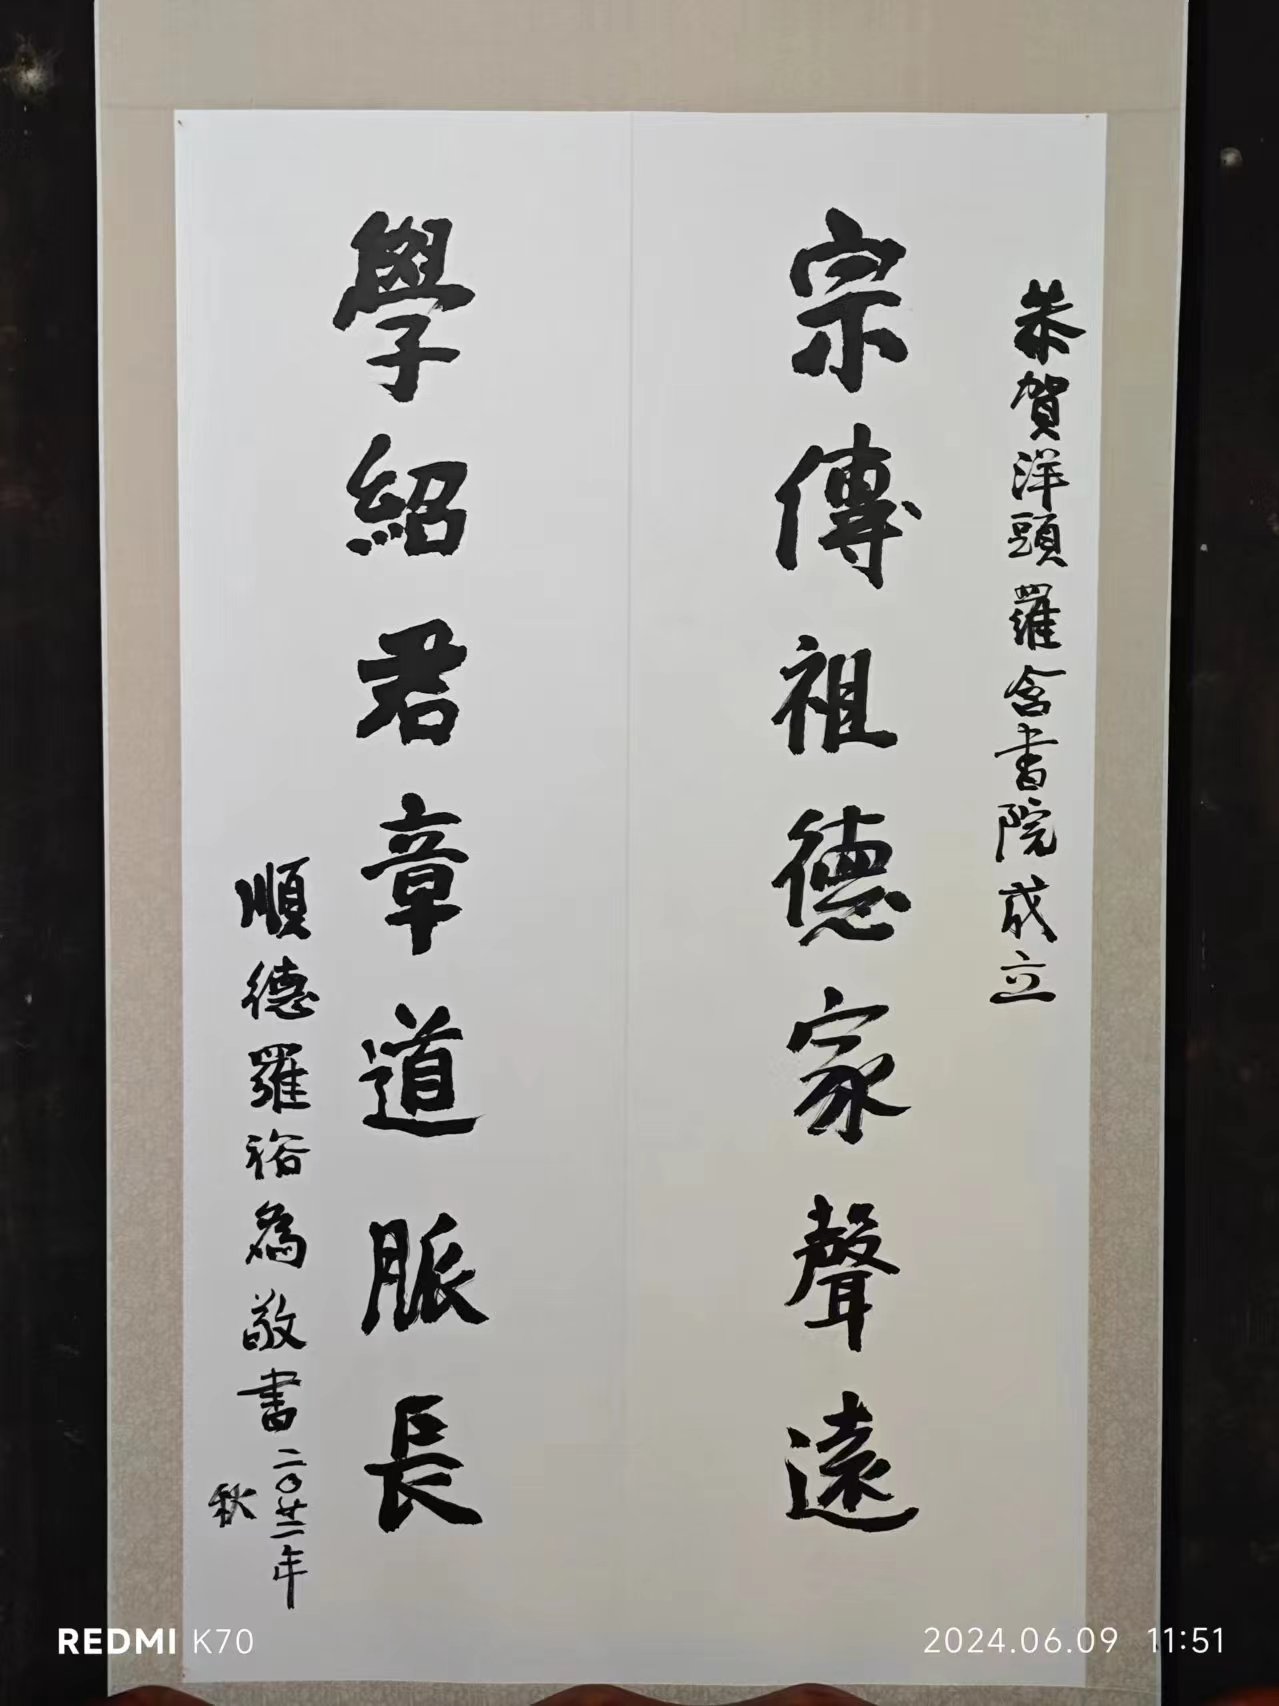 恭賀洋頭羅含書院成立
宗傳祖德家聲遠
學紹君章道脈長
順德羅裕為敬書二〇廿一年
秋
REDMI K70
2024.06.09 11:51